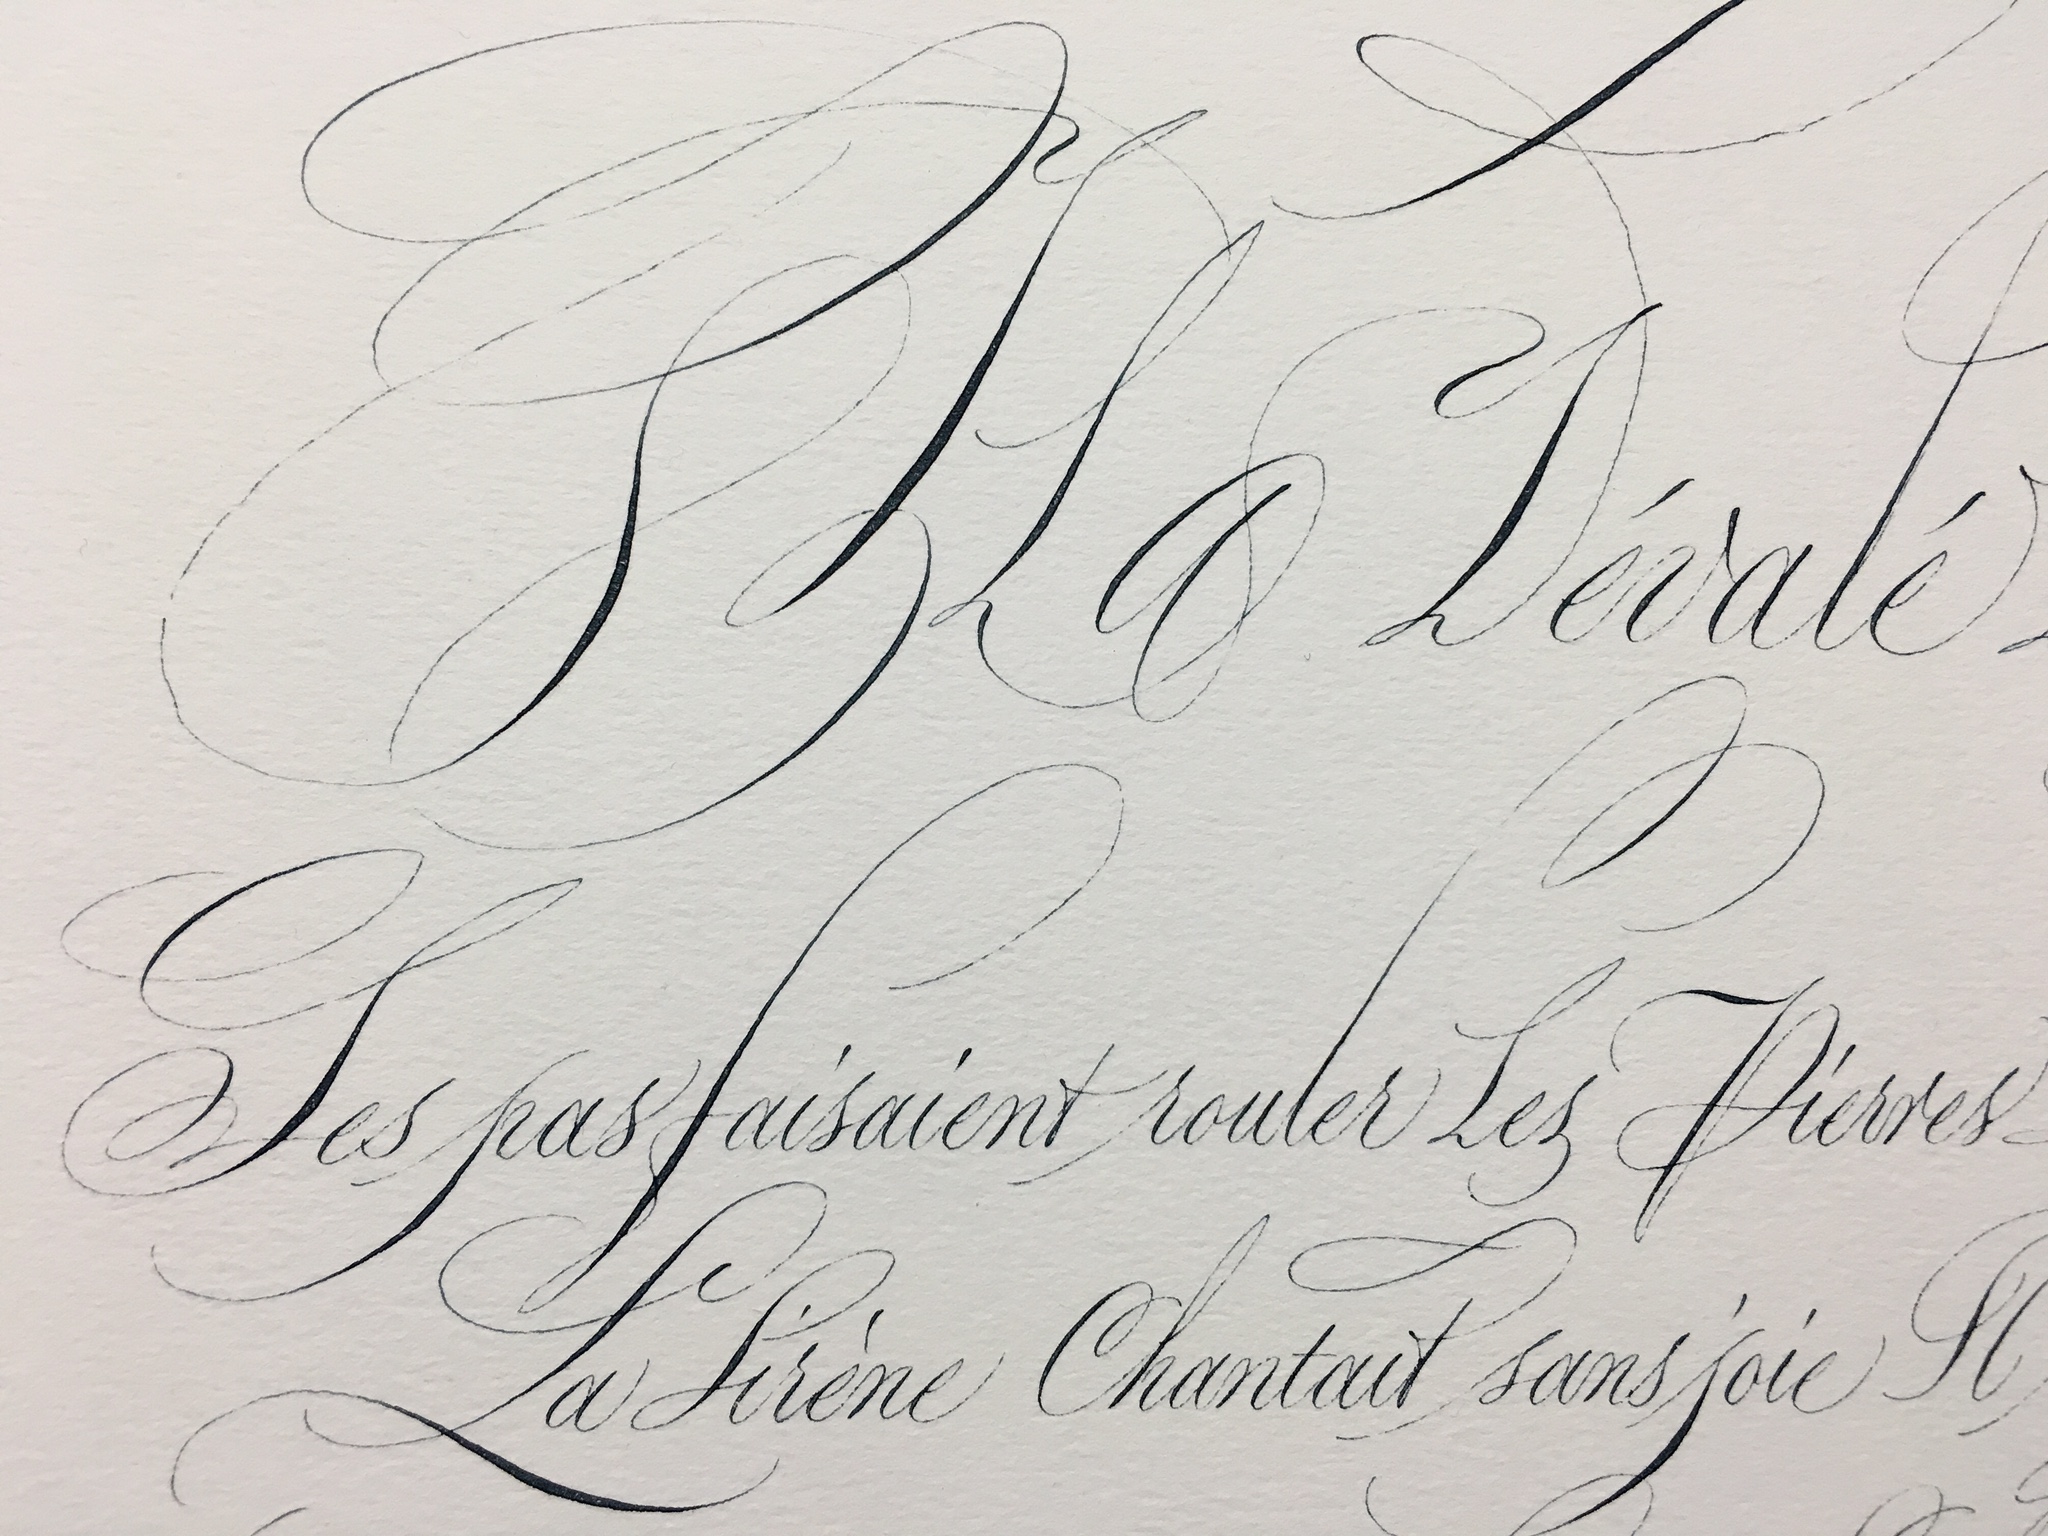 Il a Dévalé
Ses pas faisaient rouler Les Pierres
La Sirène Chantait sans joie